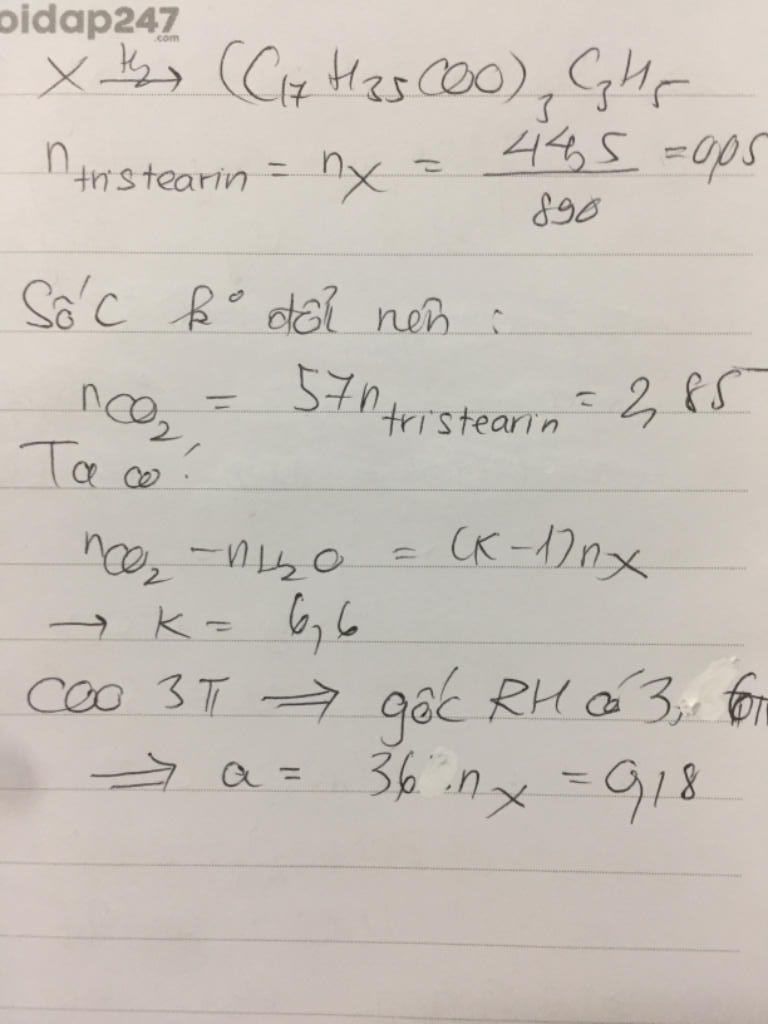 oidap247
.com
X →H₂ (C₁₇H₃₅COO)₃C₃H₅
n tristearin = nX = 44,5/890 = 0,05
Số C k° đổi nên :
nCO₂ = 57n tristearin = 2,85
Ta có:
nCO₂ - nH₂O = (K-1)nX
→ K = 6,6
COO 3π ⟹ gốc RH có 3,6π
⟹ a = 36 .nX = 0,18